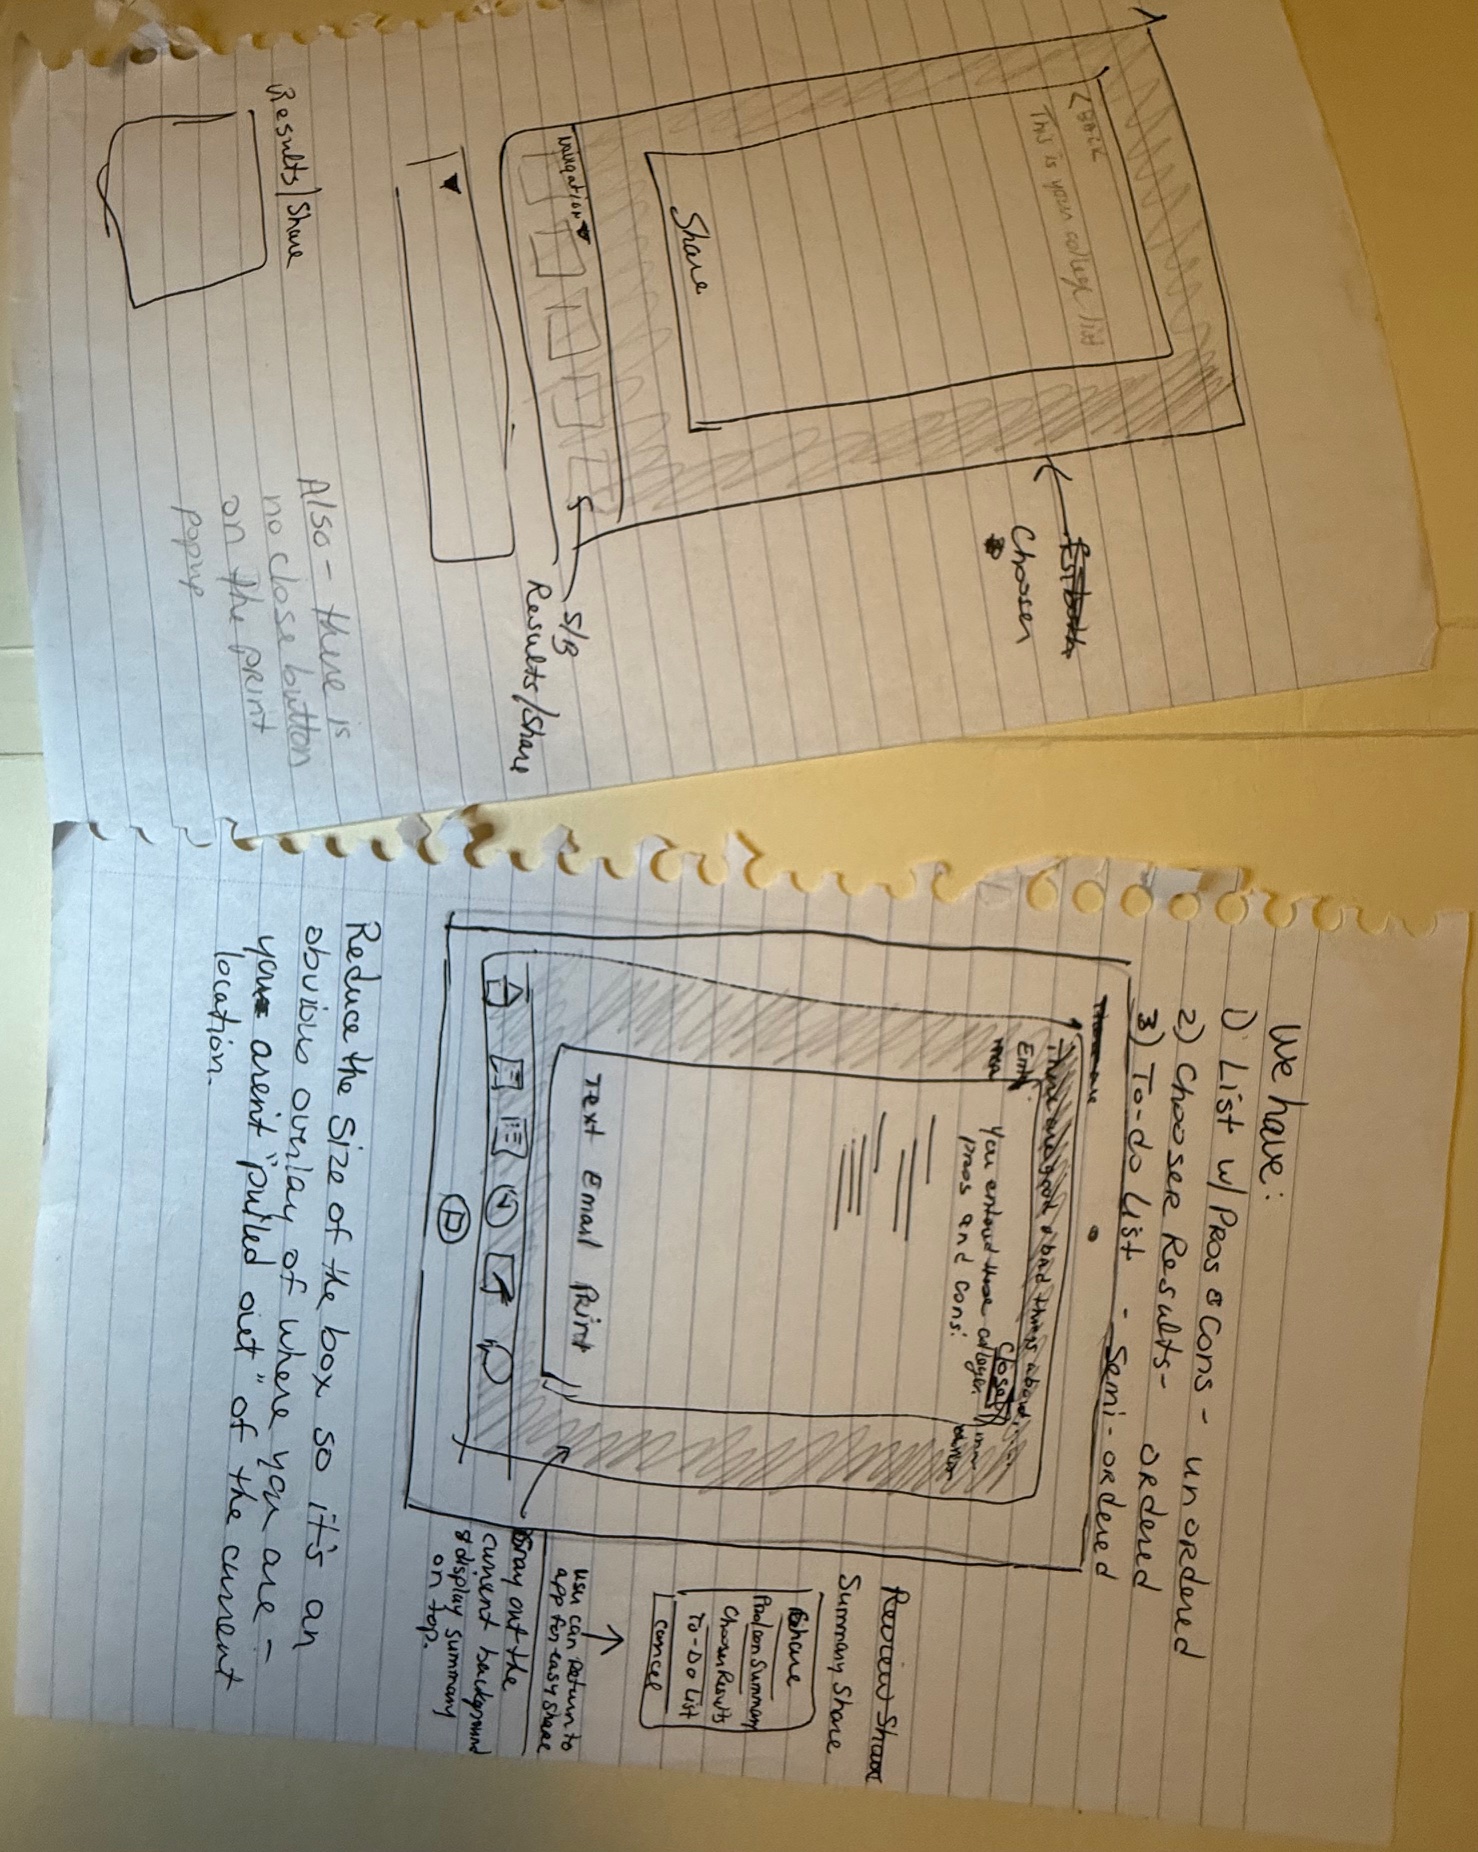 < Back
This is your college list
Share
Navigation
Chooser
S/B
Results/Share
Results/Share
Also - there is
no close button
on the print
popup
We have:
1) List w/ Pros & Cons - unordered
2) Chooser Results - ordered
3) To-do List - Semi-ordered
Close
You entered these colleges
pros and cons:
Text Email Print
Review Share
Summary Share
Share
Pro/con Summary
Chooser Results
To-Do List
cancel
user can return to
app for easy share
Gray out the
current background
& display summary
on top.
Reduce the size of the box so it's an
obvious overlay of where you are -
you arent "pulled out" of the current
location.